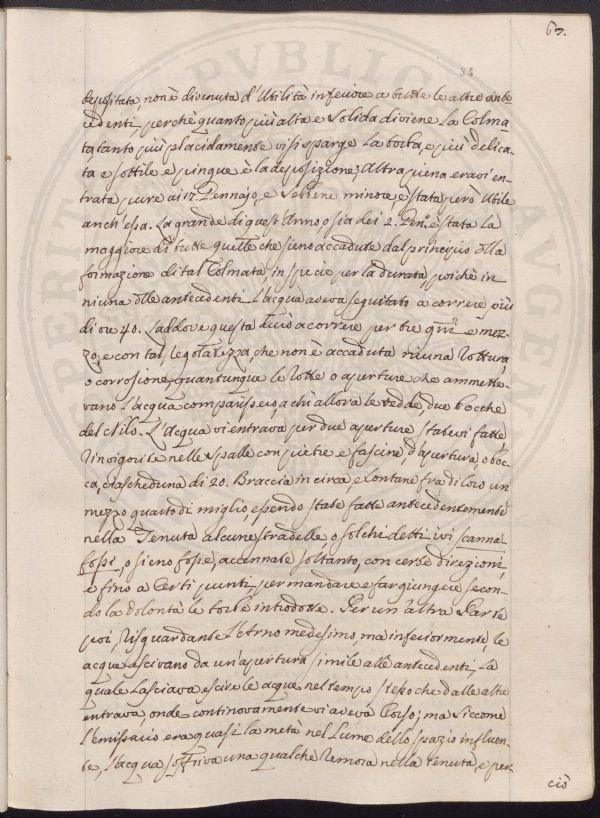 67.
35
depositata, non è divenuta d'Utilità inferiore a tutte le altre ante
cedenti, perchè quanto più alta e solida diviene la Colma=
ta, tanto più placidamente vi si sparge la torba, e più delica-
ta e sottile e pingue è la deposizione; Altra piena eravi en-
trata pure ai 17. Gennajo, e sebbene minore è stata però Utile
anch'essa. La grande di quest'Anno, o sia dei 2. Gen.º è stata la
maggiore di tutte quelle che sieno accadute dal principio della
formazione di tal Colmata, in specie per la durata, poichè in
niuna delle antecedenti l'acqua aveva seguitato a correre più
di ore 40. Laddove questa tirò a correre per tre gni e mez-
zo, e con tal regolatezza, che non è accaduta niuna rottura,
o corrosione, quantunque le rotte o aperture che ammette-
vano l'acqua comparissero, a chi allora le vedde, due bocche
del Nilo. L'acqua vi entrava per due aperture statevi fatte,
rinvigorite nelle spalle con pietre e fascine, d'apertura, o boc-
ca, ciascheduna di 20. Braccia in circa, e lontane fra di loro un
mezzo quarto di miglio, essendo state fatte antecedentemente
nella Tenuta alcune stradelle, o solchi detti ivi scanna
fossi, o sieno fosse, accennate soltanto, con certe direzioni,
e fino a certi punti, per mandare e far giungere secon-
do la Volontà le torbe introdotte. Per un'altra Parte
poi, risguardante l'Arno medesimo ma inferiormente, le
acque escivano da un'apertura simile alle antecedenti, la
quale lasciava escire le acque nel tempo stesso che dalle altre
entrava, onde continovamente vi aveva Corso; ma siccome
l'emissario era quasi la metà nel Lume dello spazio influen-
te, l'acqua soffriva una qualche remora nella tenuta, e per-
ciò
PERITI
PVBLICO
AVGEN